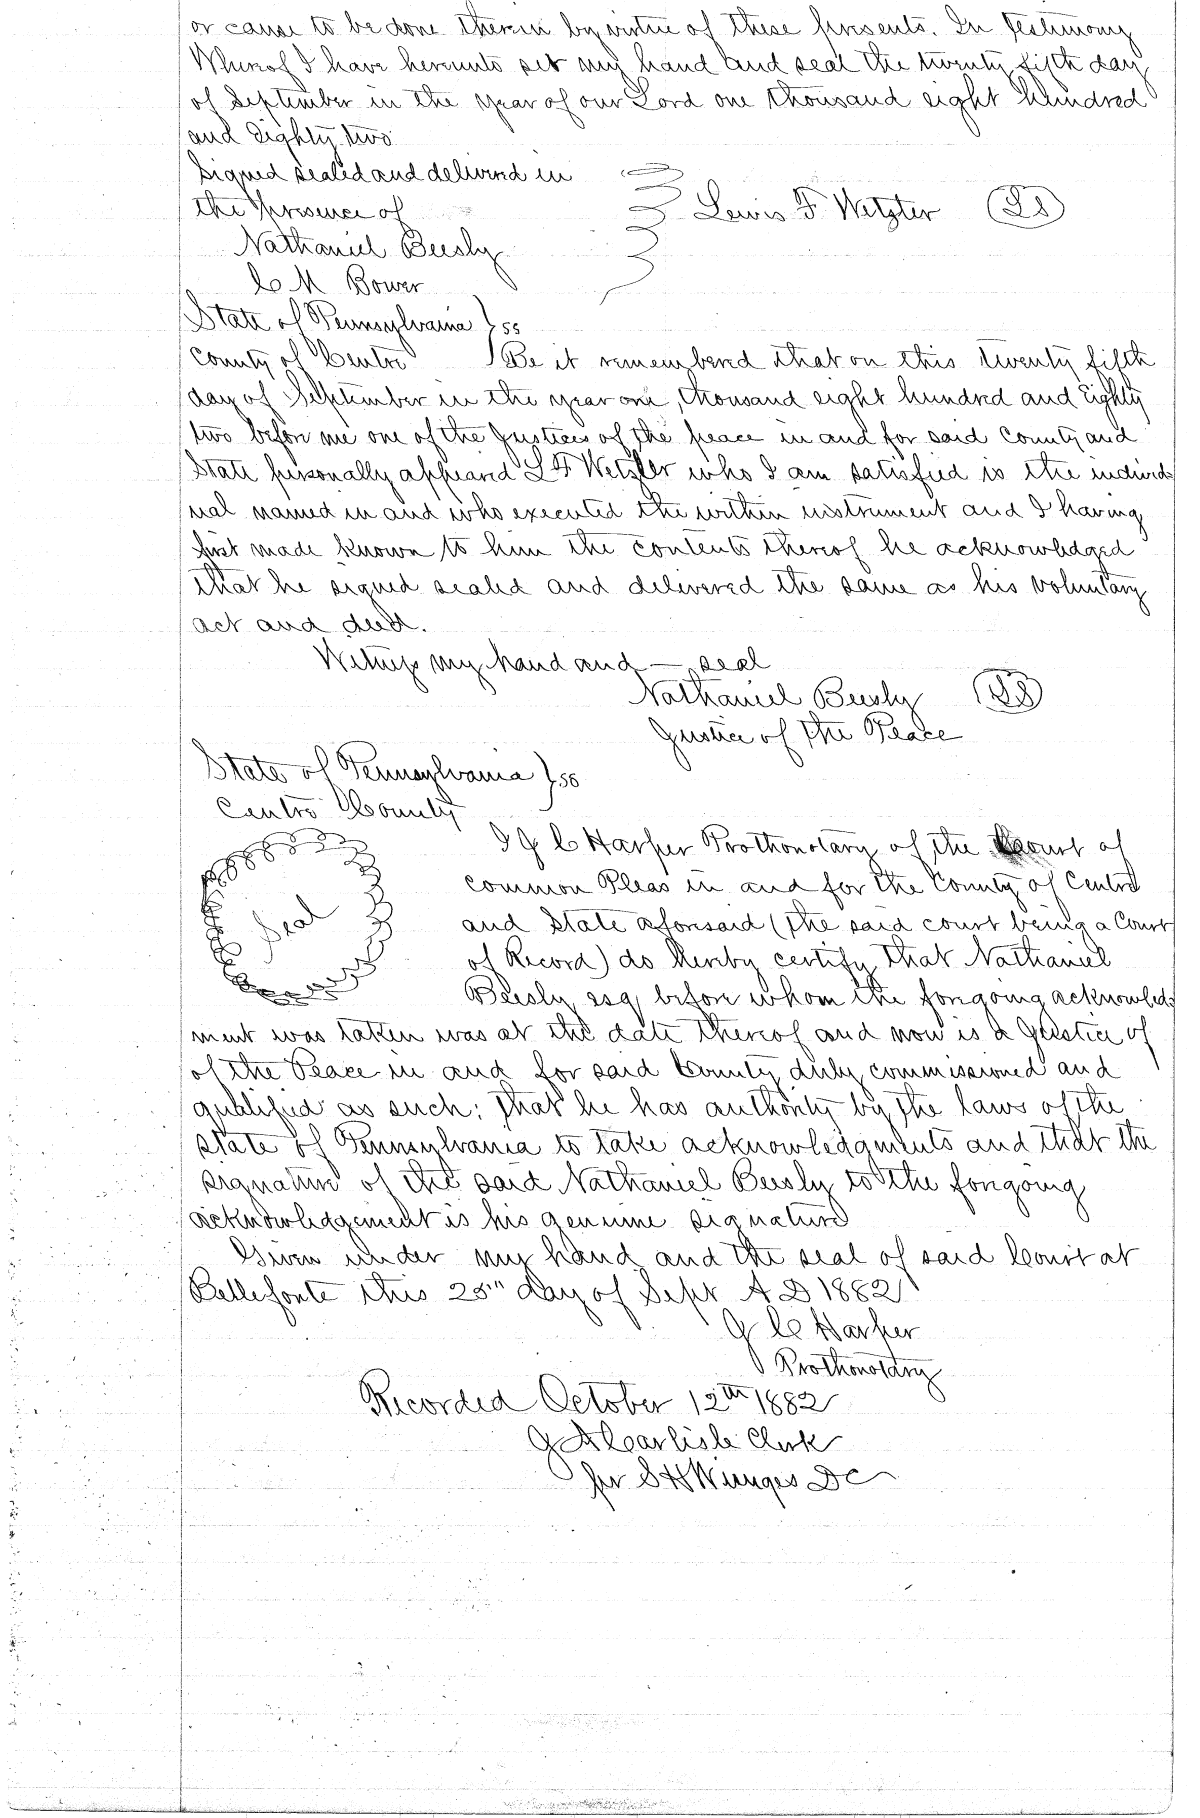 or cause to be done therein by virtue of these presents. In testimony
Whereof I have hereunto set my hand and seal the twenty fifth day
of September in the year of our Lord one thousand eight hundred
and Eighty two
Signed sealed and delivered in
the presence of
Lewis F Wetzler LS
Nathaniel Beesly
C M Bower
State of Pennsylvania } ss
County of Centre Be it remembered that on this twenty fifth
day of September in the year one, thousand eight hundred and Eighty
two before me one of the Justices of the peace in and for said County and
State personally appeard L F Wetzler who I am satisfied is the individ
ual named in and who executed the within instrument and I having
first made known to him the contents thereof he acknowledged
that he signed sealed and delivered the same as his voluntary
act and deed.
Witness my hand and — seal
Nathaniel Beesly LS
Justice of the Peace
State of Pennsylvania } ss
Centre County
I J C Harper Prothonotary of the Court of
common Pleas in and for the County of Centre
Seal
and State aforesaid (the said court being a Court
of Record) do hereby certify that Nathaniel
Beesly esq before whom the foregoing acknowledg
ment was taken was at the date thereof and now is a Justice of
of the Peace in and for said County duly commissioned and
qualified as such; that he has authority by the laws of the
state of Pennsylvania to take acknowledgments and that the
signature of the said Nathaniel Beesly to the foregoing
acknowledgement is his genuine signature
Given under my hand and the seal of said Court at
Bellefonte this 25" day of Sept A D 1882
J C Harper
Prothonotary
Recorded October 12th 1882
Carlisle Clerk
per S H DC